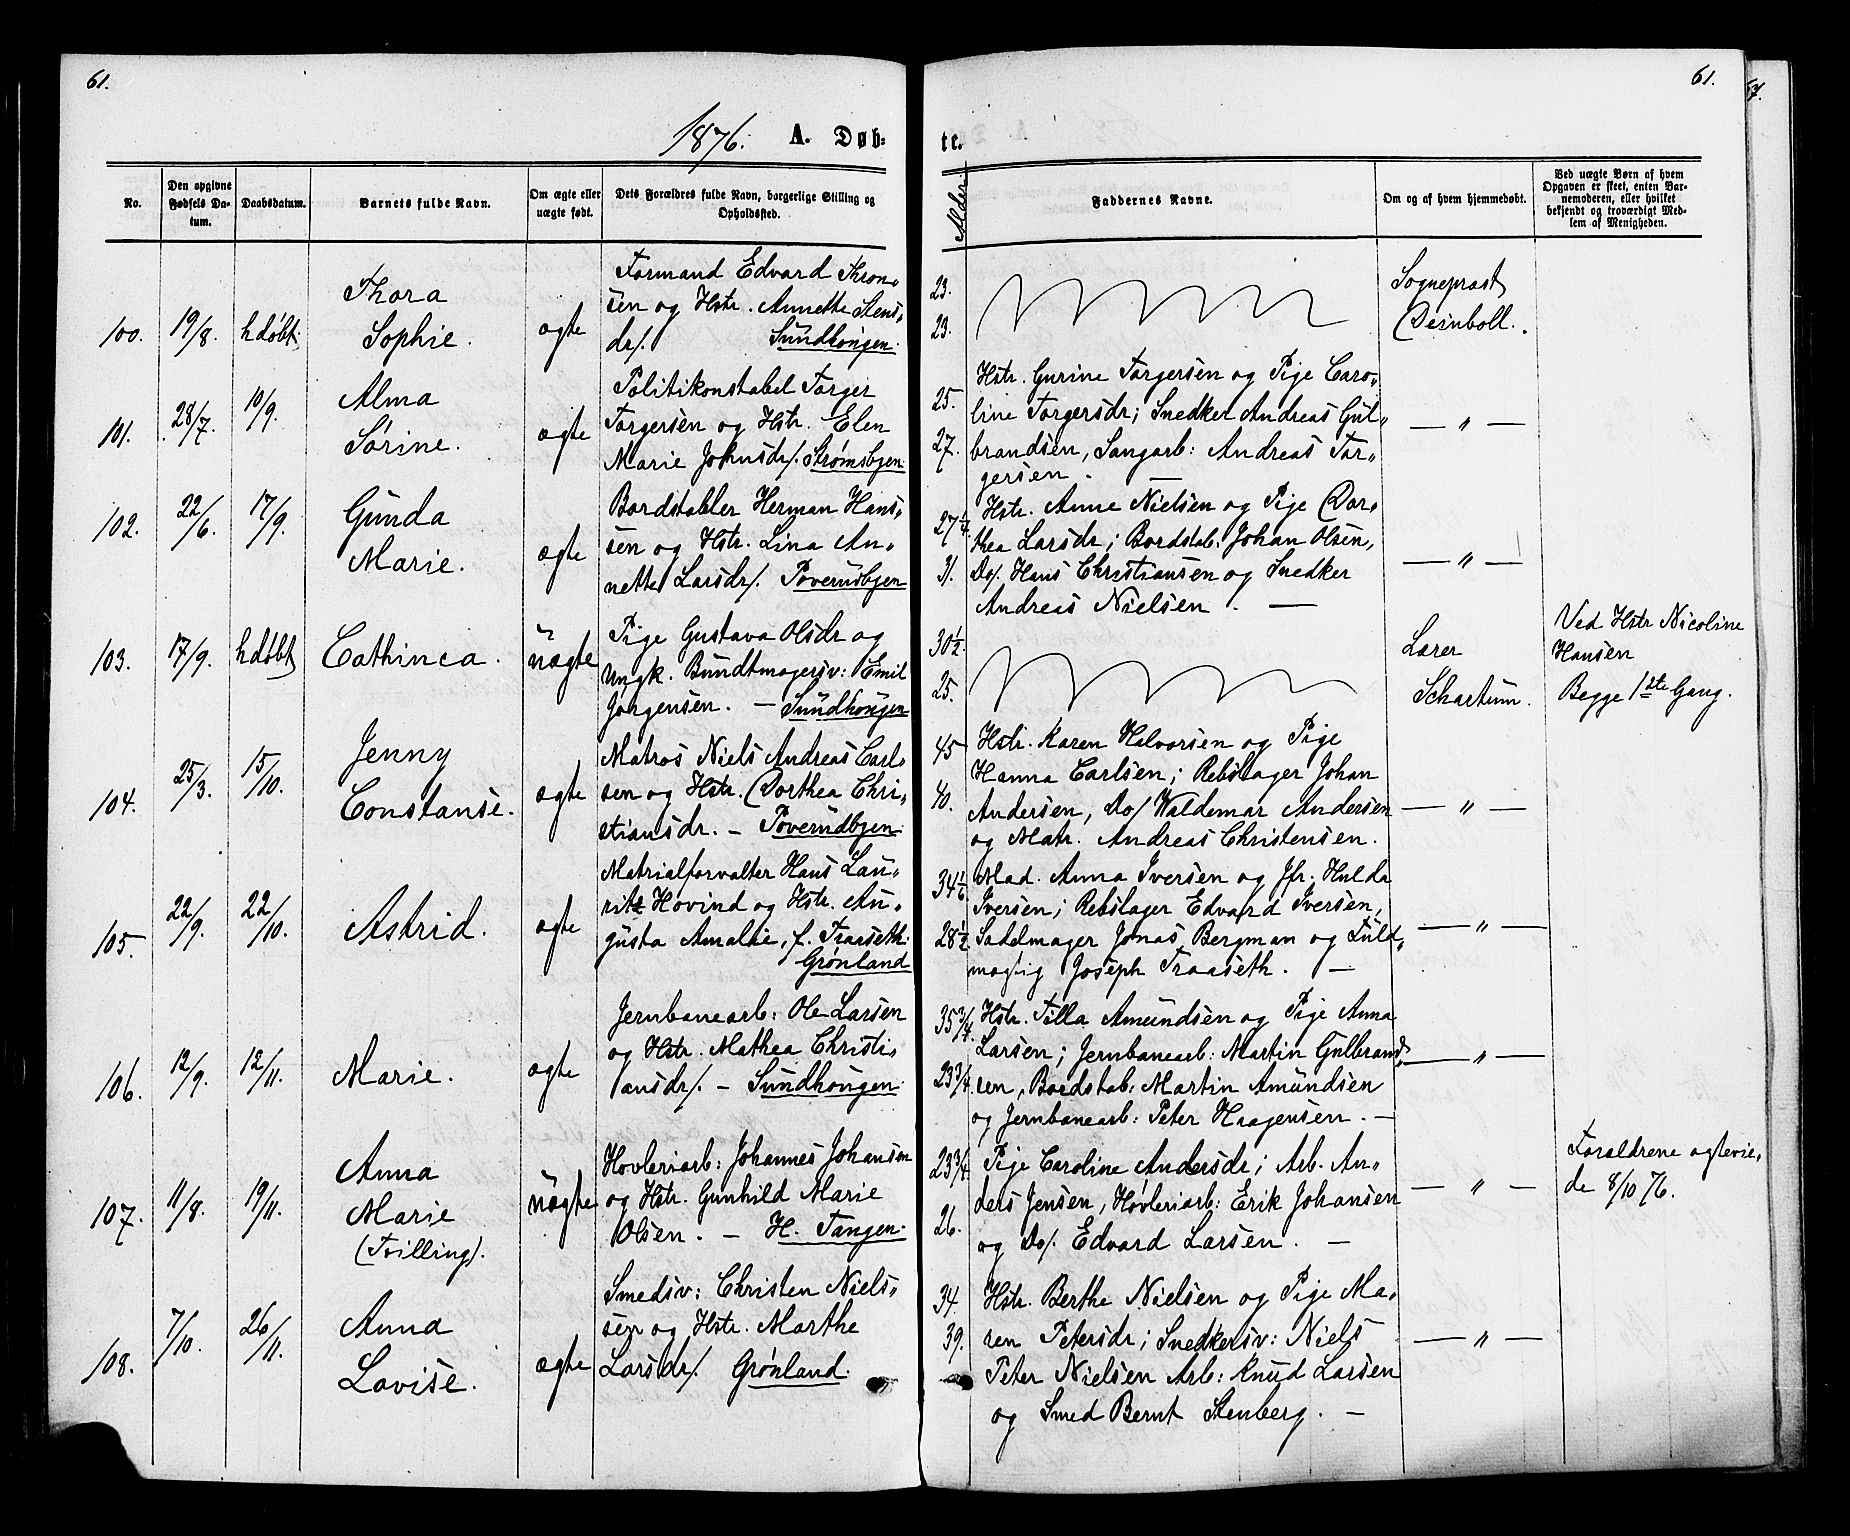 61.
61.
67.
1876. A. Døb-
te.
No.
Den opgivne Fødsels Da-
tum.
Daabsdatum.
Barnets fulde Navn.
Om ægte eller uægte født.
Dets Forældres fulde Navn, borgerlige Stilling og Opholdssted.
Alder
Faddernes Navne.
Om og af hvem hjemmedøbt.
Ved uægte Børn af hvem
Opgaven er skeet, enten Bar-
nemoderen, eller hvilket
bekjendt og troværdigt Med-
lem af Menigheden.
100. 19/8. hdøbt
Thora
Sophie.
ægte
Formand Edvard Thron-
sen og Hstr. Annette Stens-
dr/. Sundhougen.
23.
23.
Sogneprest
Deinboll.
101. 28/7. 10/9.
Alma
Sørine.
ægte
Politikonstabel Torger
Torgersen og Hstr. Elen
Marie Johnsdr/. Strømsbyen
25.
27.
Hstr. Gurine Torgersen og Pige Caro-
line Torgersdr; Snedker Andreas Gul-
brandsen, Sangarb: Andreas Tor-
gersen. —
— " —
102. 22/6. 17/9.
Gunda
Marie.
ægte
Bordstabler Herman Hans-
sen og Hstr. Lina An-
nette Larsdr/. Poverudbyen
27 1/4
31.
Hstr. Anne Nielsen og Pige Dor-
thea Larsdr; Bordstab: Johan Olsen,
Do/. Hans Christiansen og Snedker
Andreas Nielsen. —
— " —
103. 17/9. hdøbt
Cathinca.
uægte
Pige Gustava Olsdr og
Ungk. Bundtmagersv: Emil
Jørgensen. — Sundhougen
30 1/2.
25.
Lærer
Schartum.
Ved Hstr Nicoline
Hansen
Begge 1ste Gang.
104. 25/3. 15/10.
Jenny
Constanse.
ægte
Matros Niels Andreas Carl-
sen og Hstr. Dorthea Chri-
stiansdr. — Poverudbyen
45
40.
Hstr. Karen Halvorsen og Pige
Hanna Carlsen; Rebslager Johan
Andersen, Do/ Waldemar Andersen
og Matr. Andreas Christensen.
— " —
105. 22/9. 22/10.
Astrid.
ægte
Matrialforvalter Hans Lau-
ritz Hovind og Hstr. Au-
gusta Amalie, f. Traaseth.
Grønland
34 1/2
28 1/2.
Mad. Anna Iversen og Jfr. Hulda
Iversen; Rebslager Edvard Iversen,
Sadelmager Jonas Bergman og Fuld-
mægtig Joseph Traaseth. —
— " —
106. 12/9. 12/11.
Marie.
ægte
Jernbanearb: Ole Larsen
og Hstr. Mathea Christi-
ansdr/. — Sundhougen.
35 3/4.
23 3/4.
Hstr. Tilla Amundsen og Pige Anna
Larsen; Jernbanearb: Martin Gulbrand-
sen, Bordstab: Martin Amundsen
og Jernbanearb: Peter Haagensen. —
— " —
107. 11/8. 19/11.
Anna
Marie
(Tvilling).
uægte
Hovleriarb: Johannes Johansen
og Hstr. Gunhild Marie
Olsen. — H. Tangen.
23 3/4.
26.
Pige Caroline Andersdr; Arb. An-
ders Jensen, Høvleriarb: Erik Johansen
og Do/. Edvard Larsen. —
— " —
Forældrene ægtevie-
de 8/10 76.
108. 7/10. 26/11.
Anna
Lovise.
ægte
Smedsv: Christen Niels-
sen og Hstr. Marthe
Larsdr/. Grønland.
34.
39.
Hstr. Berthe Nielsen og Pige Ma-
ren Petersdr; Snedkersv: Niels
Peter Nielsen Arb: Knud Larsen
og Smed Bernt Stenberg. —
— " —